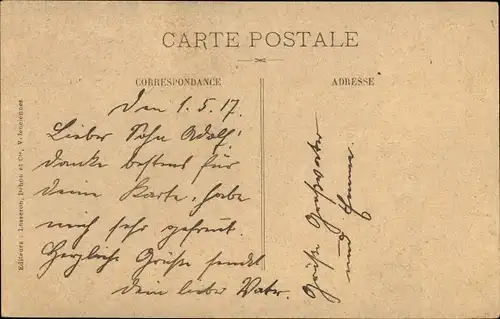 CARTE POSTALE
CORRESPONDANCE
ADRESSE
Den 1.5.17.
Lieber Sohn Adolf!
danke bestens für
deine Karte, habe
mich sehr gefreut.
Herzliche Grüße sendet
dein lieber Vater.
Grüße Großvater
und Emma.
Editeurs : Lasseron, Dehou et Cie, Valenciennes